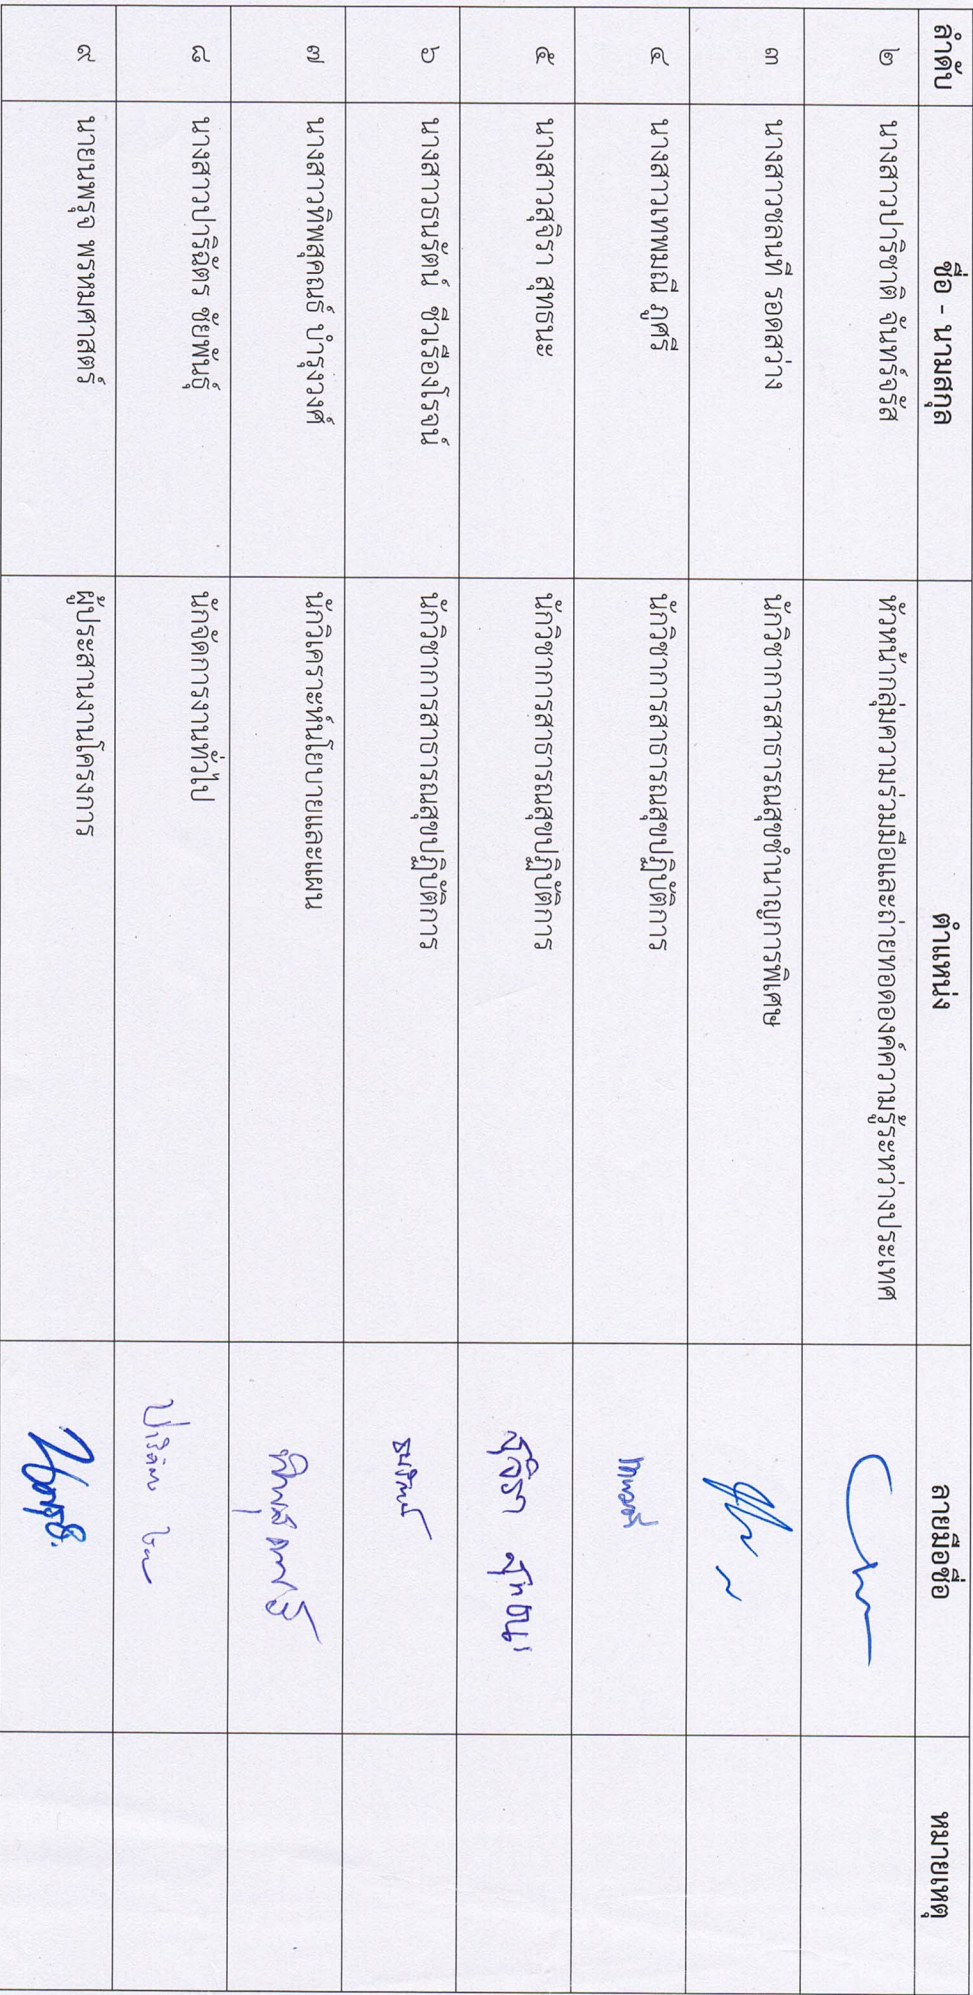 ลำดับ ชื่อ - นามสกุล ตำแหน่ง ลายมือชื่อ หมายเหตุ
๒ นางสาวปาริชาติ จันทร์จรัส หัวหน้ากลุ่มความร่วมมือและถ่ายทอดองค์ความรู้ระหว่างประเทศ
๓ นางสาวชลนที รอดสว่าง นักวิชาการสาธารณสุขชำนาญการพิเศษ
๔ นางสาวเทพมณี ภูศรี นักวิชาการสาธารณสุขปฏิบัติการ เทพมณี
๕ นางสาวสุจิรา สุทธนะ นักวิชาการสาธารณสุขปฏิบัติการ สุจิรา สุทธนะ
๖ นางสาวธนรัตน์ ชีวเรืองโรจน์ นักวิชาการสาธารณสุขปฏิบัติการ ธนรัตน์
๗ นางสาวทิพสุคณธ์ บำรุงวงศ์ นักวิเคราะห์นโยบายและแผน
๘ นางสาวปาริฉัตร ชัยพันธุ์ นักจัดการงานทั่วไป
๙ นายนพรุจ พรหมศาสตร์ ผู้ประสานงานโครงการ